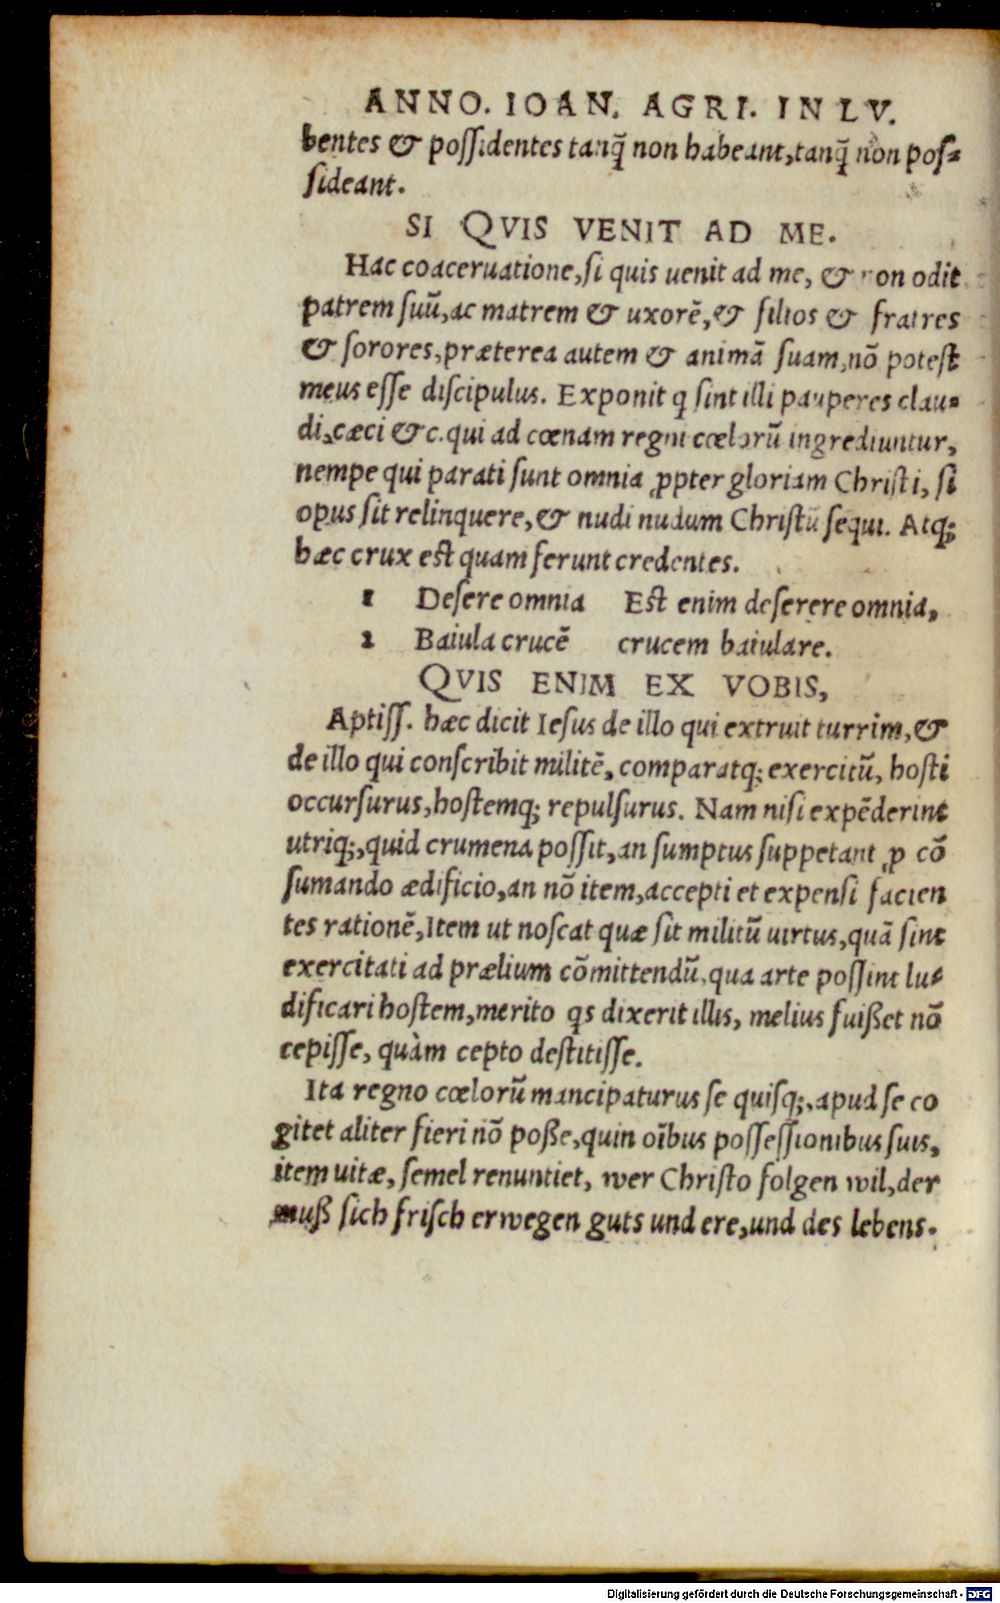 ANNO. IOAN. AGRI. IN LV.
bentes & poſſidentes tanq̃ non habeant, tanq̃ non poſ⸗
ſideant.
SI QVIS VENIT AD ME.
Hac coaceruatione, ſi quis uenit ad me, & non odit
patrem ſuũ, ac matrem & uxorẽ, & filios & fratres
& ſorores, præterea autem & animã ſuam, nõ poteſt
meus eſſe diſcipulus. Exponit q ſint illi pauperes clau⸗
di, cæci &c. qui ad cœnam regni cœlorũ ingrediuntur,
nempe qui parati ſunt omnia ꝓpter gloriam Chriſti, ſi
opus ſit relinquere, & nudi nudum Chriſtũ ſequi. Atq;
hæc crux eſt quam ferunt credentes.
1 Deſere omnia Eſt enim deſerere omnia,
2 Baiula crucẽ crucem baiulare.
QVIS ENIM EX VOBIS,
Aptiſſ. hæc dicit Ieſus de illo qui extruit turrim, &
de illo qui conſcribit militẽ, comparatq; exercitũ, hoſti
occurſurus, hoſtemq; repulſurus. Nam niſi expẽderint
utriq;, quid crumena poſſit, an ſumptus ſuppetant ꝓ cõ
ſumando ædificio, an nõ item, accepti et expenſi facien
tes rationẽ, Item ut noſcat quæ ſit militũ uirtus, quã ſint
exercitati ad prælium cõmittendũ, qua arte poſſint lu⸗
dificari hoſtem, merito qs dixerit illis, melius fuißet nõ
cepiſſe, quàm cepto deſtitiſſe.
Ita regno cœlorũ mancipaturus ſe quiſq;, apud ſe co
gitet aliter fieri nõ poße, quin oĩbus poſſeſſionibus ſuis,
item uitæ, ſemel renuntiet, wer Chriſto folgen wil, der
muß ſich friſch erwegen guts und ere, und des lebens.
Digitalisierung gefördert durch die Deutsche Forschungsgemeinschaft - DFG